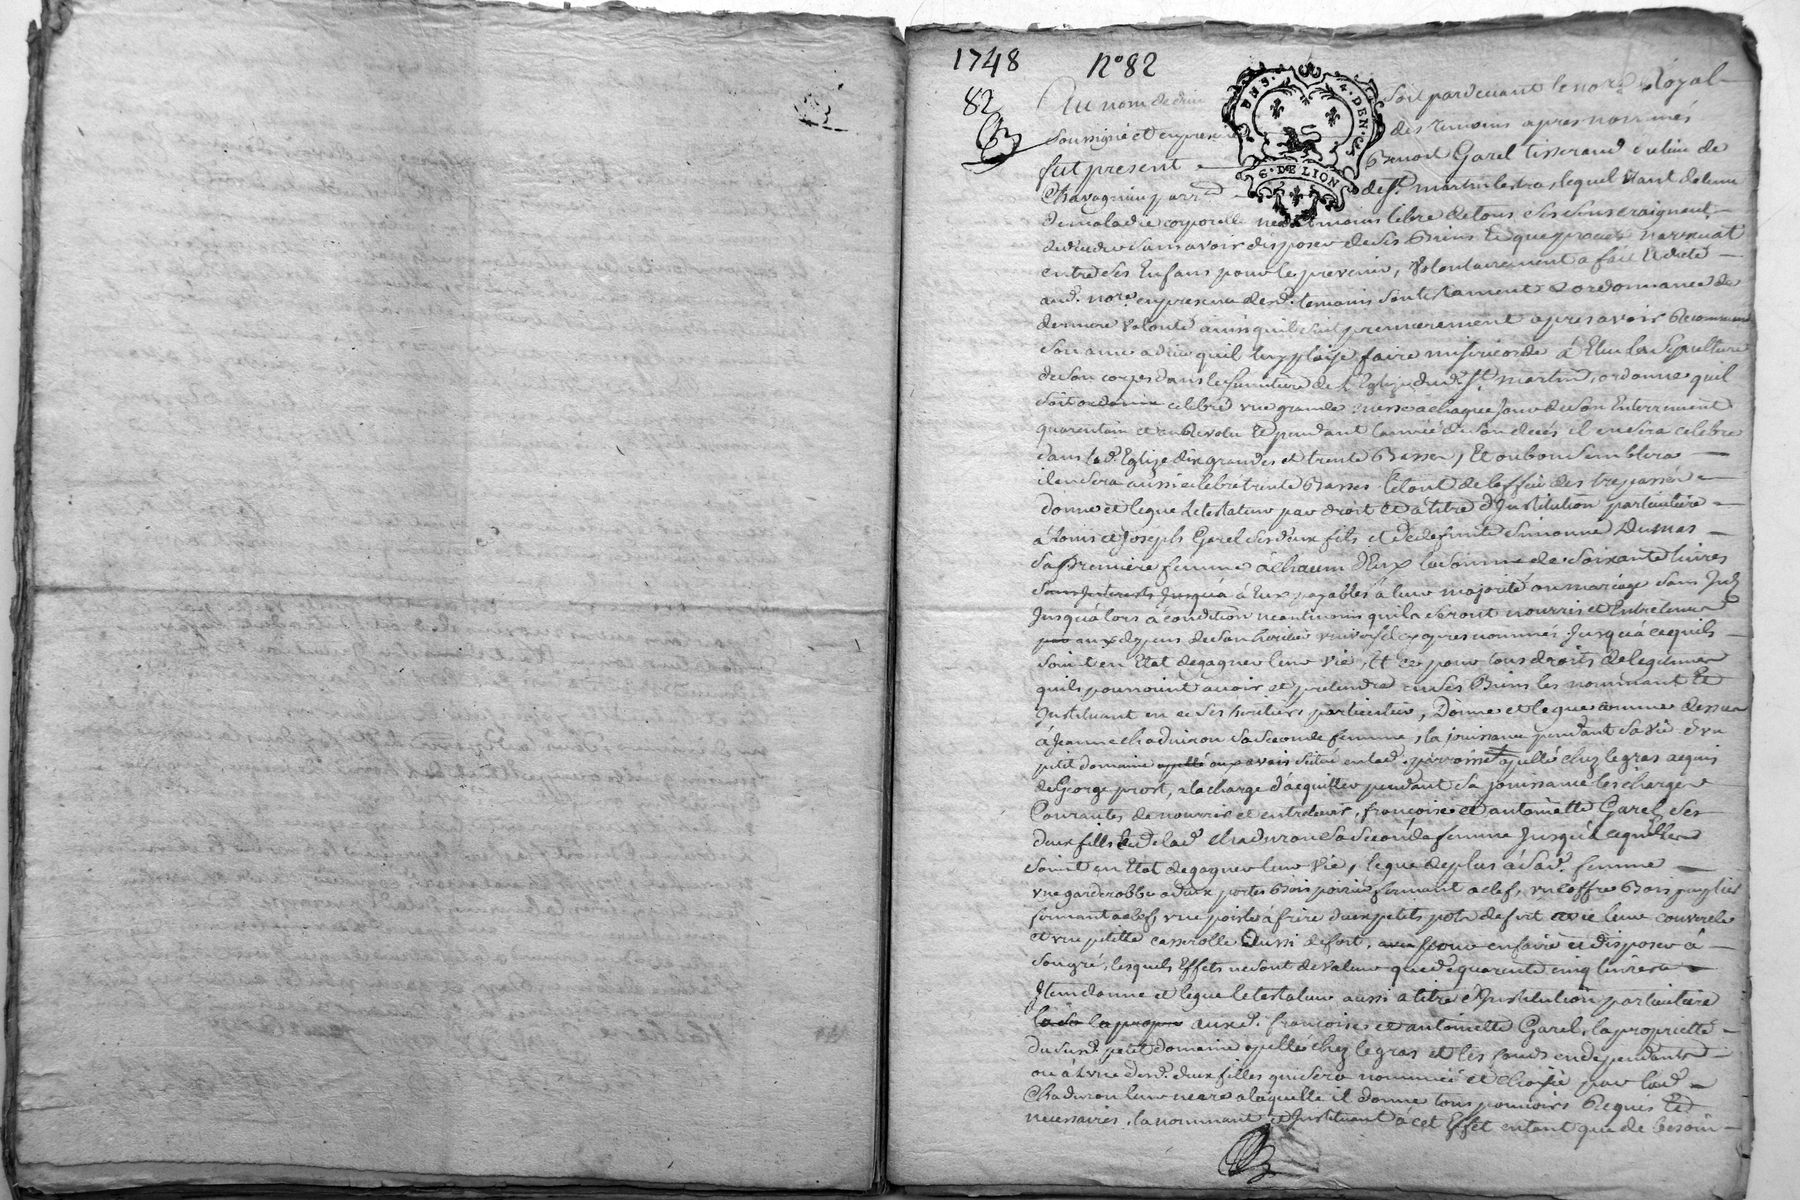 1748 N° 82
82
DHS. 4. DEN. CS
G. DE LION
Au nom de dieu Soit pardevant le nore. Royal
Soussigné et en presence des temoins apres nommés
fut present Benoit Garel tisserand du lieu de
Chavagnieu parr. de St. martin lestra, lequel Etant detenu
de maladie corporelle neantmoins libre de tous ses sens craignent
de deceder sans avoir disposer de ses Biens Et que proces narrivat
entre ses Enfans pour les prevenir, Volontairement a fait Et dicté
aud. nore. en presence desd. temoins son testament & ordonnance de
derniere Volonté ainsi quil suit premierement apres avoir Recommandé
Son ame a dieu quil luy plaise faire misericorde à Elu la Sepulture
de Son corps dans le Cimitiere de l'Eglise dud. St. martin, ordonne quil
soit celebré vne grande messe a chaque Jour de Son Enterrement
quarentain et an Revolu Et pendant l'année de Son deces il en sera celebré
dans lad. Eglise dix grandes et trente Basses, Et ou bon Semblera
il en sera aussi celebré trente Basses Le tout de loffice des trepassés
donne et legue Le testateur par droit Et a titre d'Institution particuliere
à Louis et Joseph Garel Ses deux fils et de defunte Simonne Dumas
Sa Premiere femme à chacun d'Eux la Somme de Soixante livres
Jusqu'à à Eux payables à leur majorité ou mariage sans Jnts.
Jusqu'a lors à condition neantmoins quils seront nourris et Entretenus
aux depens de Son heritier vniversel cy apres nommé Jusqu'à cequils
soint en Etat de gagner leur vie, Et ce pour tous droits de legitime
quils pourroint avoir et pretendre en Ses Biens les nommant Et
Jnstituant en ce Ses heritiers particuliers, Donne et legue comme dessus
a Jeanne chaduiron Sa Seconde femme, la jouissance pendant Sa vie d'vn
petit domaine Situé en lad. parroisse apellé chez le gras acquis
de George prost, a la charge d'acquitter pendant Sa jouissance les charges
Courantes de nourrir et entretenir, françoise et antoinette Garel Ses
deux filles et de lad. chaduron Sa Seconde femme Jusqu'à ce quelles
Soint en Etat de gagner leur Vie, legue de plus à Sad. femme
vne garderobbe a deux portes Bois poirier fermant a clef, vn coffre Bois
fermant a clef, vne poisle à frire deux petits pots de fert avec leur couvercle
et vne petitte casserolle Aussi de fert, pour en faire et disposer à
Son gré, lesquels Effets ne Sont de Valeur que de quarente cinq livres
Jtem donne et legue le testateur aussi a titre d'Institution particuliere
auxd. françoise et antoinette Garel, la proprietté
du Susd. petit domaine apellé chez le gras et les fonds en dependants
ou à l'vne desd. deux filles qui sera nommée et choisie par lad.
Chaduron leur mere a laquelle il donne tous pouvoirs Requis Et
necessaires, la nommant et Jnstituant à cet Effet en tant que de besoin